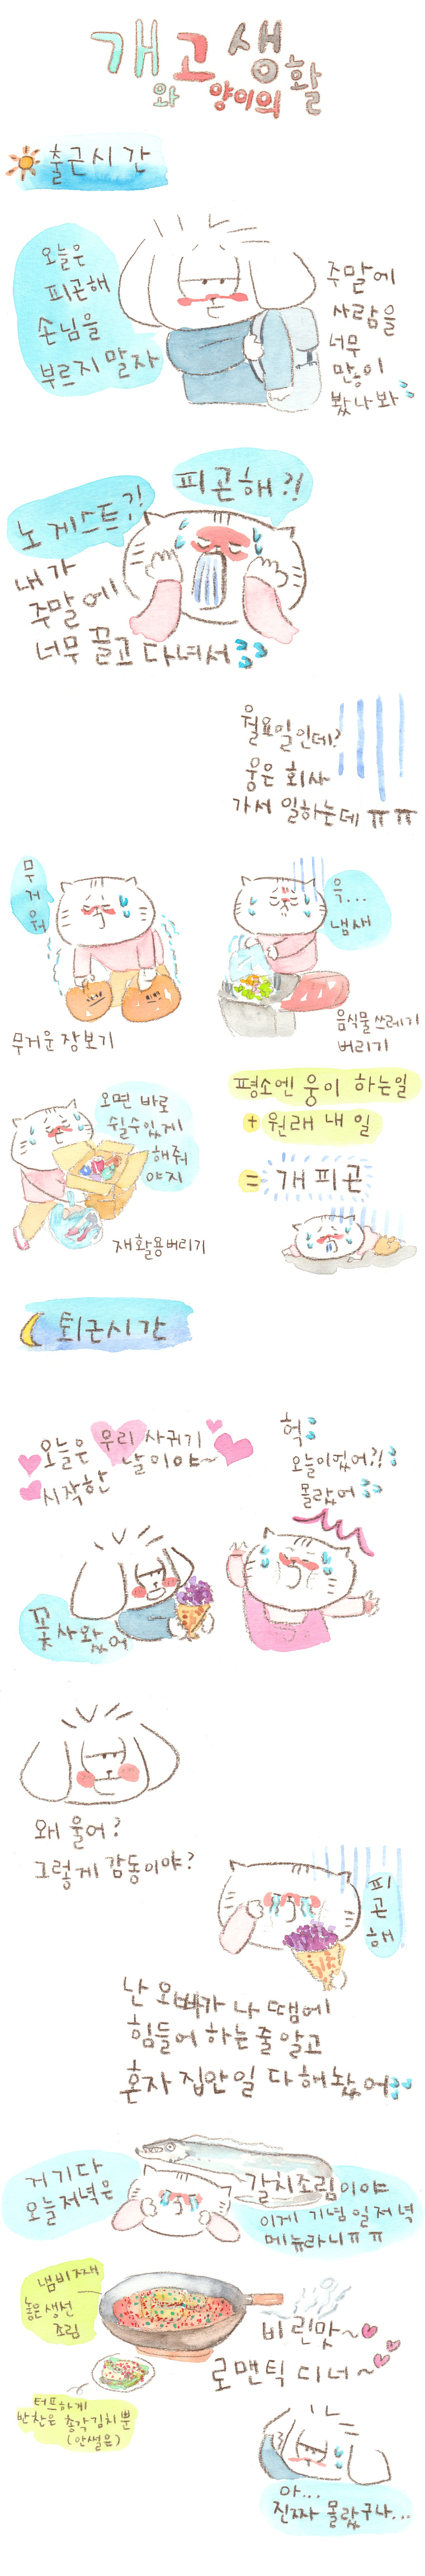 개와 고양이의 생활
출근시간
오늘은
피곤해
손님을
부르지 말자
주말에
사람을
너무
많이
봤나봐
노 게스트?!
피곤해?!
내가
주말에
너무 끌고 다녀서
월요일인데?
웅은 회사
가서 일하는데 ㅠㅠ
무거워
무거운 장보기
윽...
냄새
음식물 쓰레기
버리기
오면 바로
쉴수있게
해줘
야지
재활용버리기
평소엔 웅이 하는일
+ 원래 내 일
= 개 피곤
퇴근시간
오늘은 우리 사귀기
시작한 날이야~
헉
오늘이었어?!
몰랐어
꽃 사왔어
왜 울어?
그렇게 감동이야?
피곤해
난 오빠가 나 땜에
힘들어 하는줄 알고
혼자 집안일 다해놨어
거기다
오늘저녁은
갈치조림이야
이게 기념일저녁
메뉴라니ㅠㅠ
냄비째
놓은 생선
조림
비린맛~
로맨틱 디너~
터프하게
반찬은 총각김치뿐
(안썰음)
아...
진짜 몰랐구나...